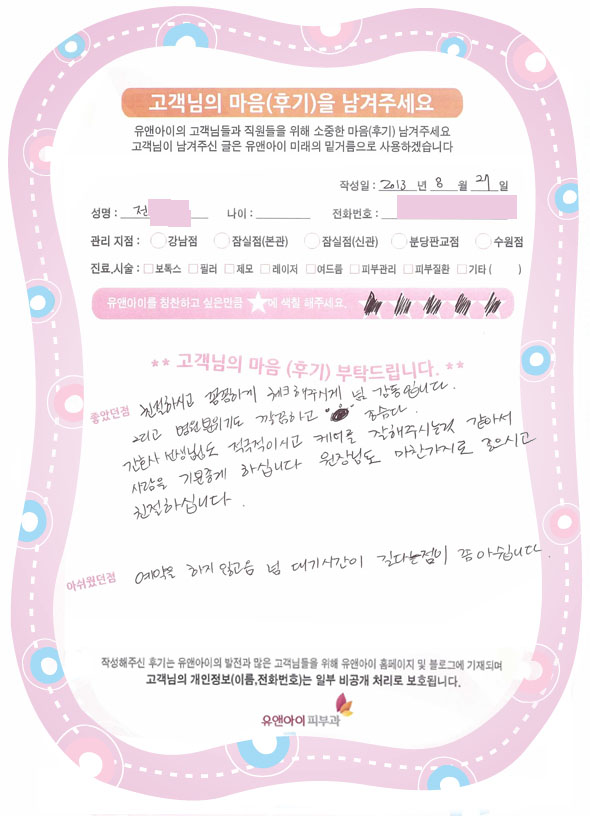 고객님의 마음(후기)을 남겨주세요
유앤아이의 고객님들과 직원들을 위해 소중한 마음(후기) 남겨주세요
고객님이 남겨주신 글은 유앤아이 미래의 밑거름으로 사용하겠습니다
작성일 : 2013 년 8 월 27 일
성명 : 전 나이 : 전화번호 :
관리 지점 : 강남점 잠실점(본관) 잠실점(신관) 분당판교점 수원점
진료,시술 : 보톡스 필러 제모 레이저 여드름 피부관리 피부질환 기타 ( )
유앤아이를 칭찬하고 싶은만큼 ★에 색칠 해주세요.
** 고객님의 마음 (후기) 부탁드립니다. **
좋았던점 친절하시고 꼼꼼하게 체크해주시게 넘 감동입니다.
그리고 병원분위기도 깔끔하고 좋습다.
간호사 선생님들도 적극적이시고 케어를 잘해주시는것 같아서
사람을 기분좋게 하십니다 원장님도 마찬가지로 고으시고
친절하십니다.
아쉬웠던점 예약을 하지 않고음 넘 대기시간이 길다는점이 쫌 아쉽니다.
작성해주신 후기는 유앤아이의 발전과 많은 고객님들을 위해 유앤아이 홈페이지 및 블로그에 기재되며
고객님의 개인정보(이름,전화번호)는 일부 비공개 처리로 보호됩니다.
유앤아이 피부과